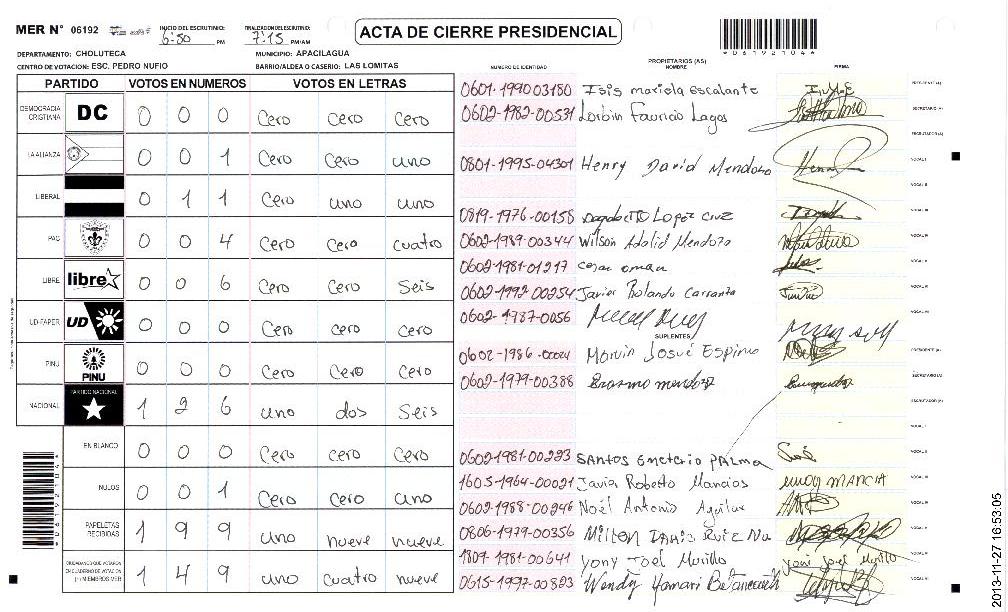 MER N° 06192
INICIO DEL ESCRUTINIO: 6:50 PM
FINALIZACION ESCRUTINIO: 7:15 PM/AM
ACTA DE CIERRE PRESIDENCIAL
*06192104*
DEPARTAMENTO: CHOLUTECA
MUNICIPIO: APACILAGUA
CENTRO DE VOTACION: ESC. PEDRO NUFIO
BARRIO/ALDEA O CASERIO: LAS LOMITAS
PARTIDO VOTOS EN NUMEROS VOTOS EN LETRAS
DEMOCRACIA CRISTIANA DC 0 0 0 Cero Cero Cero
LA ALIANZA 0 0 1 Cero Cero uno
LIBERAL 0 1 1 Cero uno uno
PAC 0 0 4 Cero Cero cuatro
LIBRE libre 0 0 6 Cero Cero Seis
UD-FAPER UD 0 0 0 Cero Cero Cero
PINU PINU 0 0 0 Cero Cero Cero
NACIONAL PARTIDO NACIONAL 1 2 6 uno dos Seis
EN BLANCO 0 0 0 Cero Cero Cero
NULOS 0 0 1 Cero Cero uno
PAPELETAS RECIBIDAS 1 9 9 uno nueve nueve
CIUDADANOS QUE VOTARON EN CUADERNO DE VOTACION (+) MIEMBROS MER 1 4 9 uno cuatro nueve
NUMERO DE IDENTIDAD
PROPIETARIOS (AS)
NOMBRE
FIRMA
0601-1990 03180 Isis mariela escalante
PRESIDENTE (A)
0602-1982-00531 Lorbin Fauricio Lagos
SECRETARIO (A)
ESCRUTADOR (A)
0801-1995-04301 Henry David Mendoza
VOCAL I
VOCAL II
0819-1976-00158 Dagoberto Lopez Cruz
0602-1989-00344 Wilson Adolid Mendoza
0602-1981-01217 Cesar oman
0602-1992-00254 Javier Rolando Carranza
0602-1987-0056
SUPLENTES
0602-1986-00024 Marvin Josué Espino
PRESIDENTE (A)
0602-1979-00388 Erasmo mendoza
SECRETARIO (A)
ESCRUTADOR (A)
0602-1981-00223 SANTOS Emeterio PALMA
1605-1964-00021 Javier Roberto Mancias
0602-1988-00246 Noél Antonio Aguilar
0806-1979-00356
1807-1981-00641 yony Joel Murillo
0615-1997-00823 Wendy Yamari Betancourth
*06192104*
2013-11-27 16:53:05